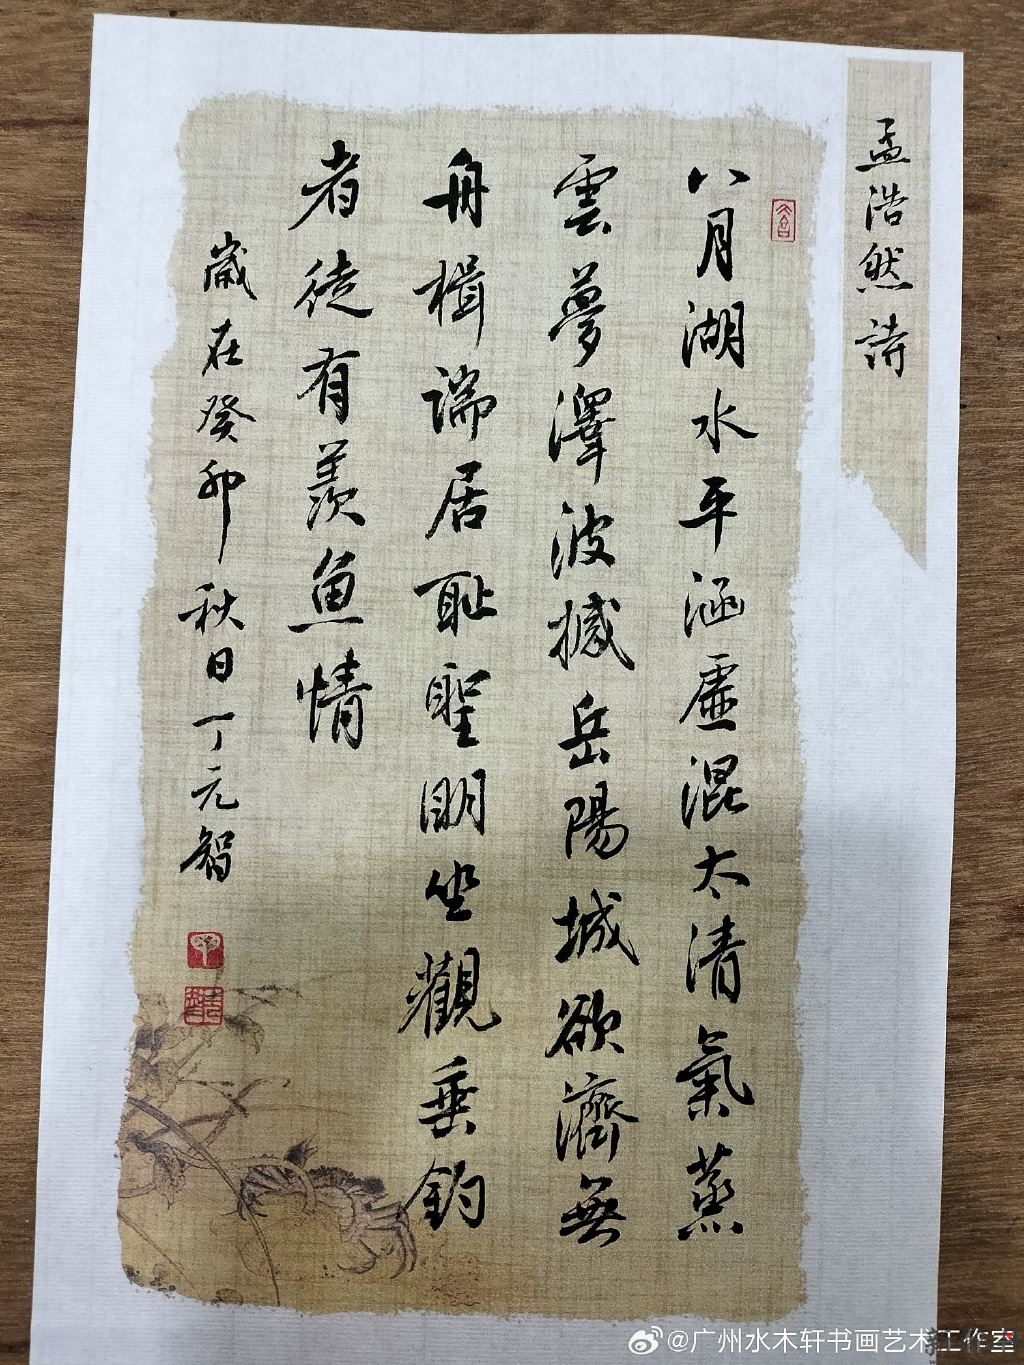 孟浩然詩
八月湖水平涵虛混太清氣蒸
雲夢澤波撼岳陽城欲濟無
舟楫端居恥聖明坐觀垂釣
者徒有羨魚情
歲在癸卯秋日丁元智
@广州水木轩书画艺术工作室